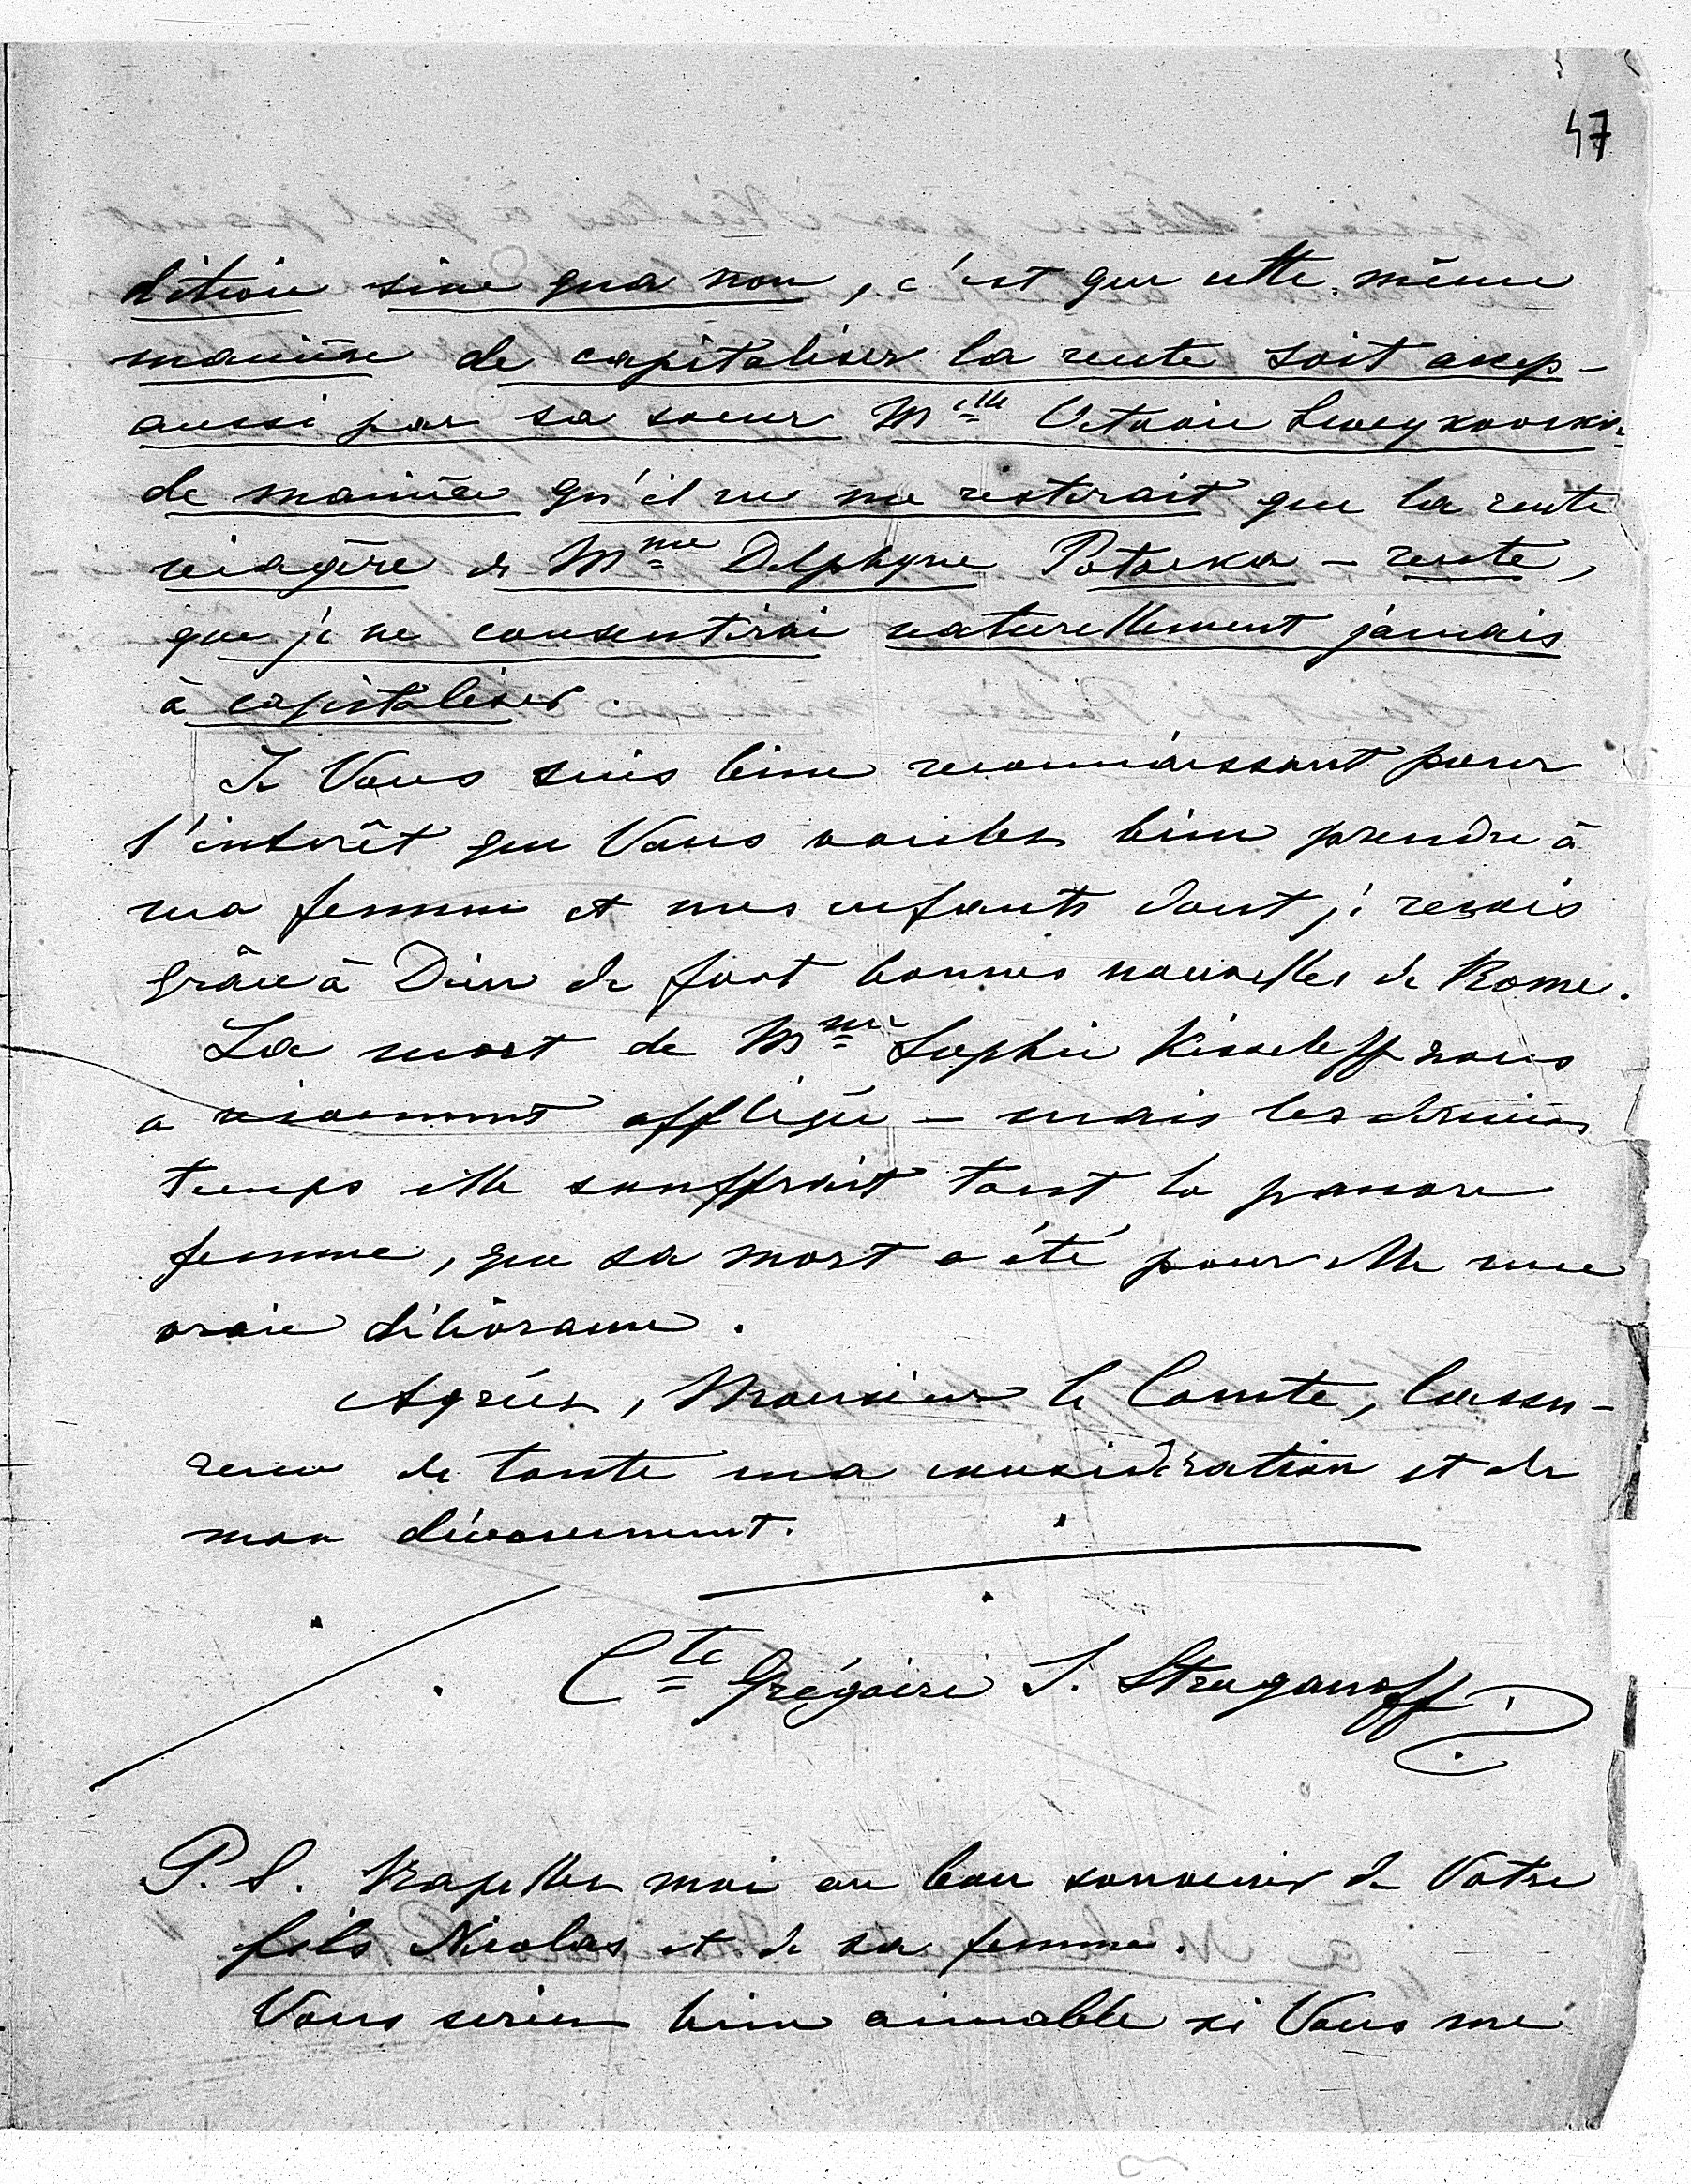 47
dition sine qua non, c'est que cette même
manière de capitaliser la rente soit accep-
aussi par sa soeur Melle Octavie
de manière qu'il ne me resterait que la rente
viagère de Mme Delphyne Potocka – rente,
que je ne consentirai naturellement jamais
à capitaliser.
Je Vous suis bien reconnaissant pour
l'intérêt que Vous voulez bien prendre à
ma femme et mes enfants dont je reçois
grâce à Dieu de fort bonnes nouvelles de Rome.
La mort de Mme Sophie Kisseleff nous
a vivement affligée – mais les derniers
temps elle souffrait tant la pauvre
femme, que sa mort a été pour elle une
vraie délivrance.
Agréez, Monsieur le Comte, l'assu-
rance de toute ma considération et de
mon dévouement.
Cte Grégoire S. Stroganoff
P. S. Rapellez moi au bon souvenir de Votre
fils Nicolas et de sa femme.
Vous seriez bien aimable si Vous me